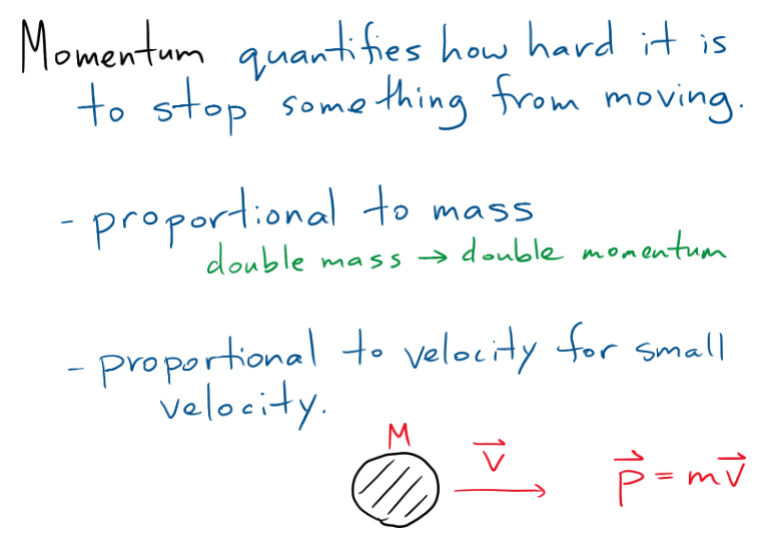 Momentum quantifies how hard it is
to stop something from moving.
- proportional to mass
double mass → double momentum
- proportional to velocity for small
velocity.
M
v⃗
p⃗ = mv⃗